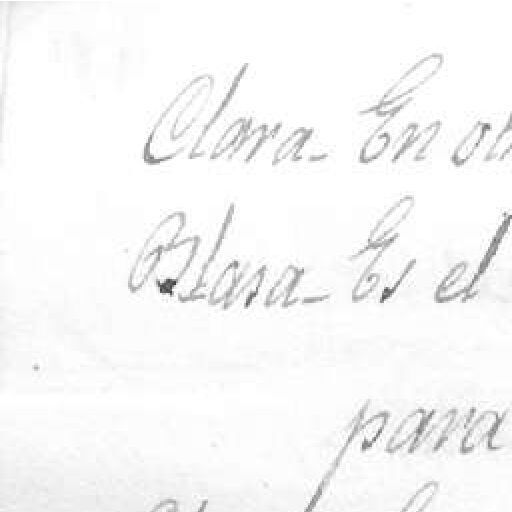 Clara - En
Blasa - Es el
para